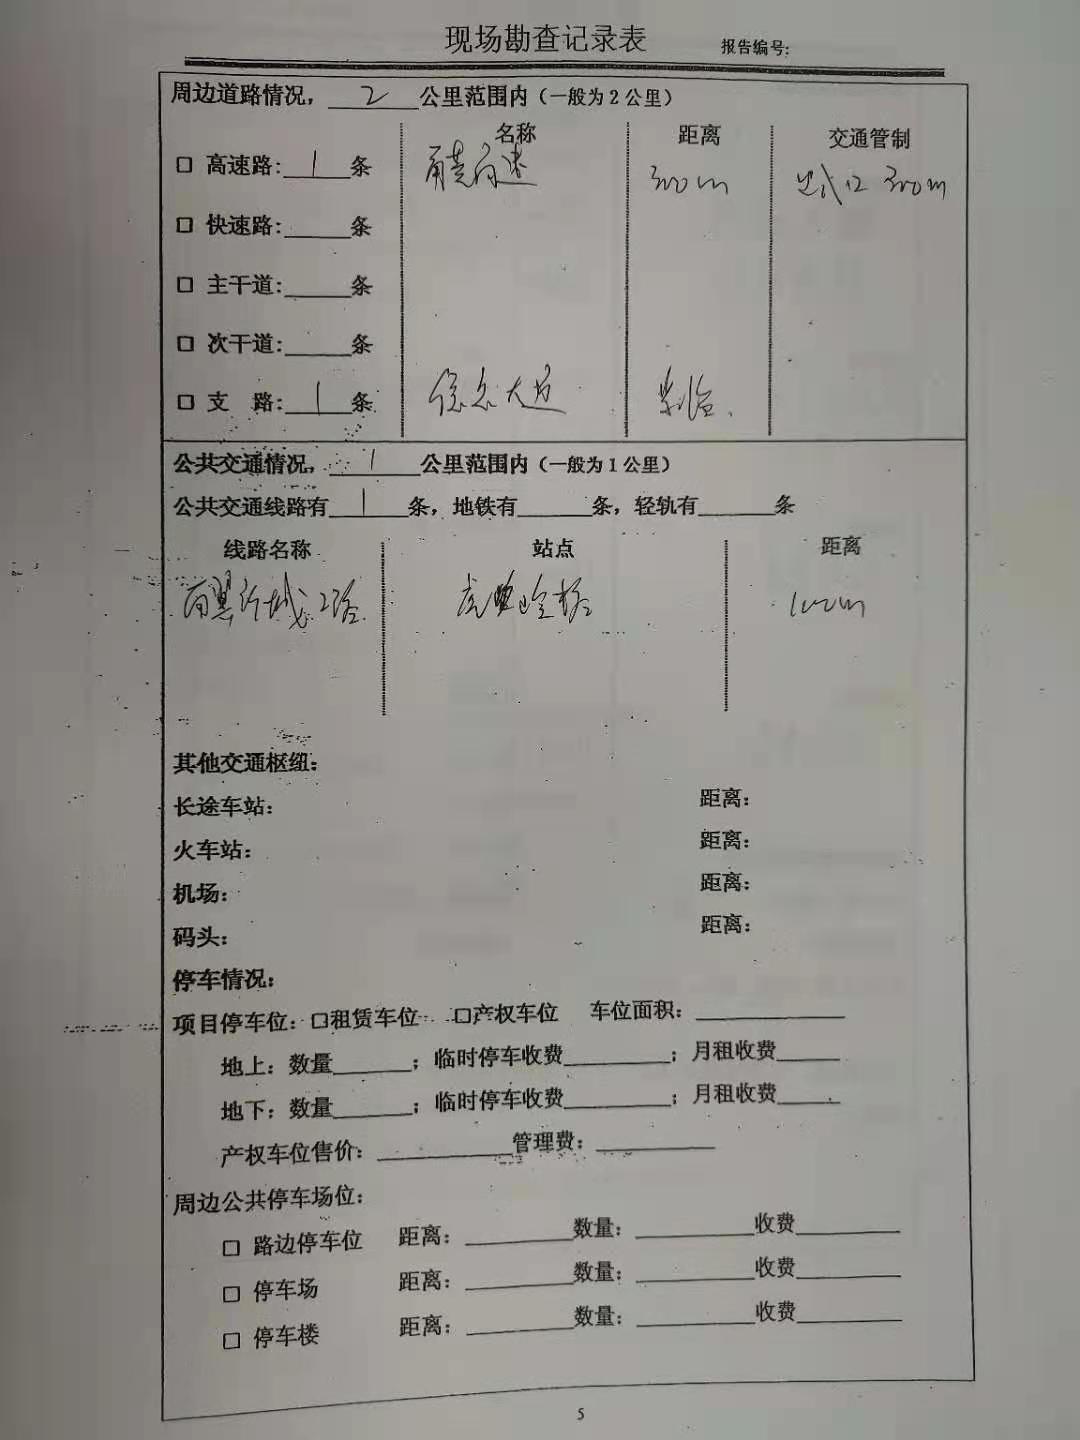 现场勘查记录表 报告编号:
周边道路情况, 2 公里范围内(一般为2公里)
名称 距离 交通管制
□ 高速路: 1 条 甬莞高速 300m 出入口 300m
□ 快速路: 条
□ 主干道: 条
□ 次干道: 条
□ 支 路: 1 条 大道 紧临.
公共交通情况, 1 公里范围内(一般为1公里)
公共交通线路有 1 条, 地铁有 条, 轻轨有 条
线路名称 站点 距离
南翼新城2路 100m
其他交通枢纽:
长途车站: 距离:
火车站: 距离:
机场: 距离:
码头: 距离:
停车情况:
项目停车位: □租赁车位 □产权车位 车位面积:
地上: 数量 ; 临时停车收费 ; 月租收费
地下: 数量 ; 临时停车收费 ; 月租收费
产权车位售价: 管理费:
周边公共停车场位:
□ 路边停车位 距离: 数量: 收费
□ 停车场 距离: 数量: 收费
□ 停车楼 距离: 数量: 收费
5